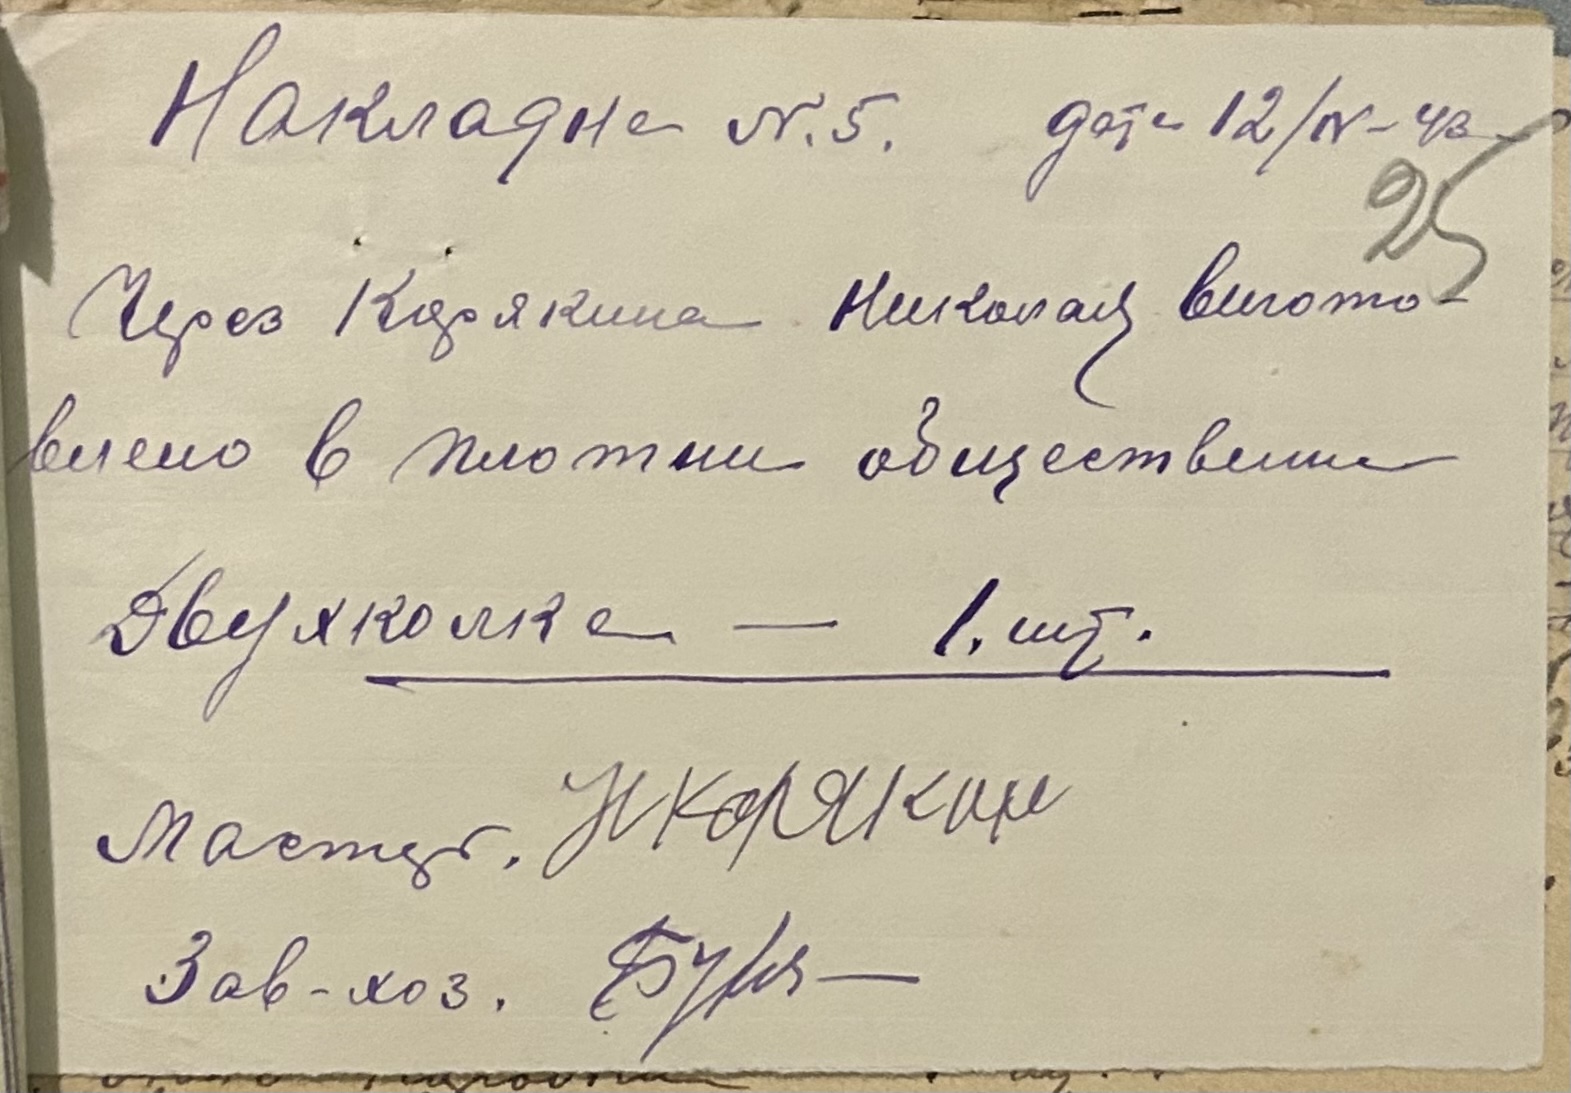 Накладна N.5. дата 12/IV-43
25
Через Корякина Николая вигото-
влено в плотни общественни
Двухколка — 1. шт.
Мастер. Н Корякин
Зав-хоз.